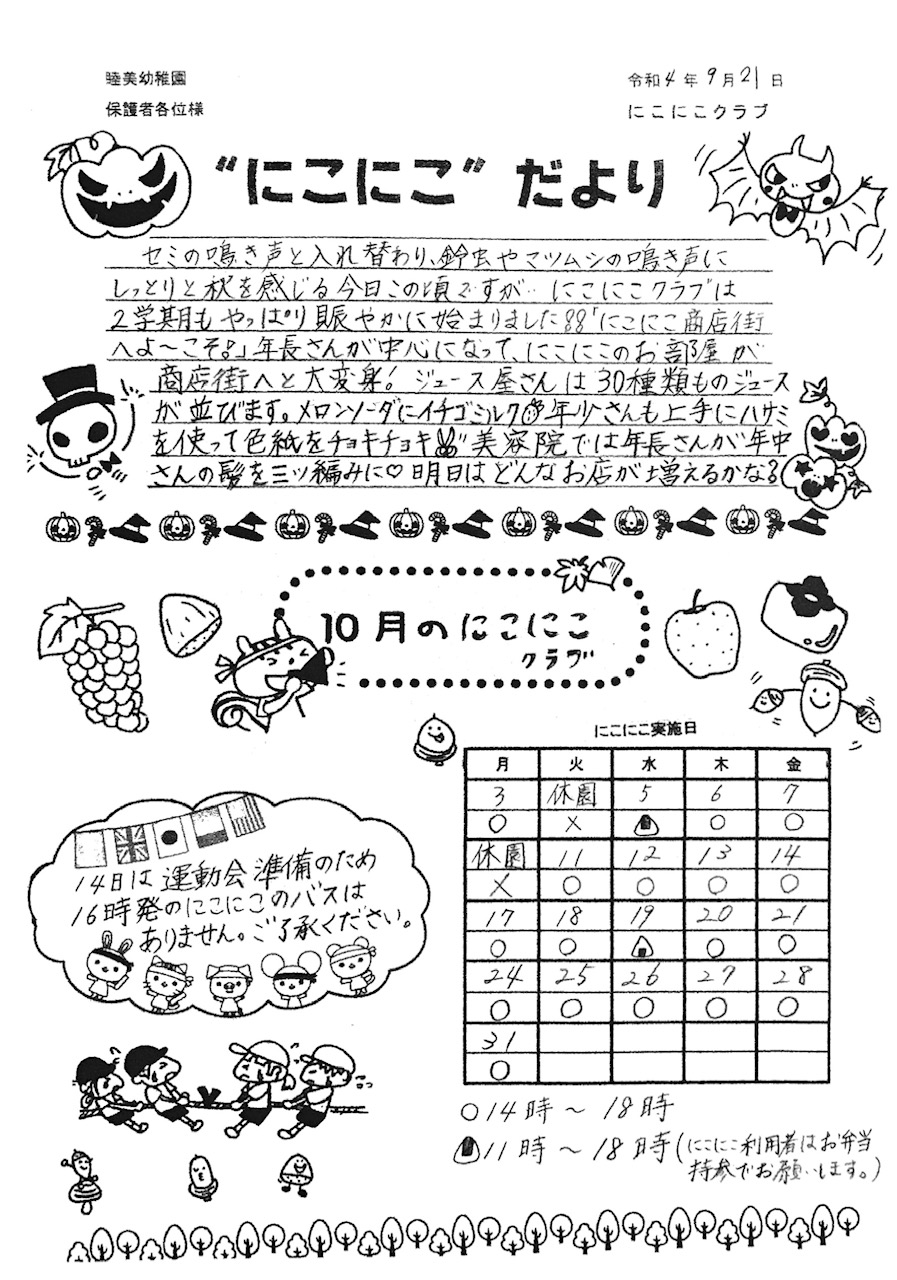 睦美幼稚園
令和4年9月21日
保護者各位様
にこにこクラブ
"にこにこ" だより
セミの鳴き声と入れ替わり、鈴虫やマツムシの鳴き声に
しっとりと秋を感じる今日この頃ですが… にこにこクラブは
2学期もやっぱり賑やかに始まりました!!「にこにこ商店街
へよ〜こそ!」年長さんが中心になって、にこにこのお部屋が
商店街へと大変身! ジュース屋さんは30種類ものジュース
が並びます。メロンソーダにイチゴミルク 年少さんも上手にハサミ
を使って色紙をチョキチョキ 美容院では年長さんが年中
さんの髪を三ツ編みに♡ 明日はどんなお店が増えるかな?
10月のにこにこ
クラブ
にこにこ実施日
月 火 水 木 金
3 休園 5 6 7
○ × 🍙 ○ ○
休園 11 12 13 14
× ○ ○ ○ ○
17 18 19 20 21
○ ○ 🍙 ○ ○
24 25 26 27 28
○ ○ ○ ○ ○
31
○
14日は運動会準備のため
16時発のにこにこのバスは
ありません。ご了承ください。
○14時〜18時
🍙11時〜18時(にこにこ利用者はお弁当
持参でお願いします。)